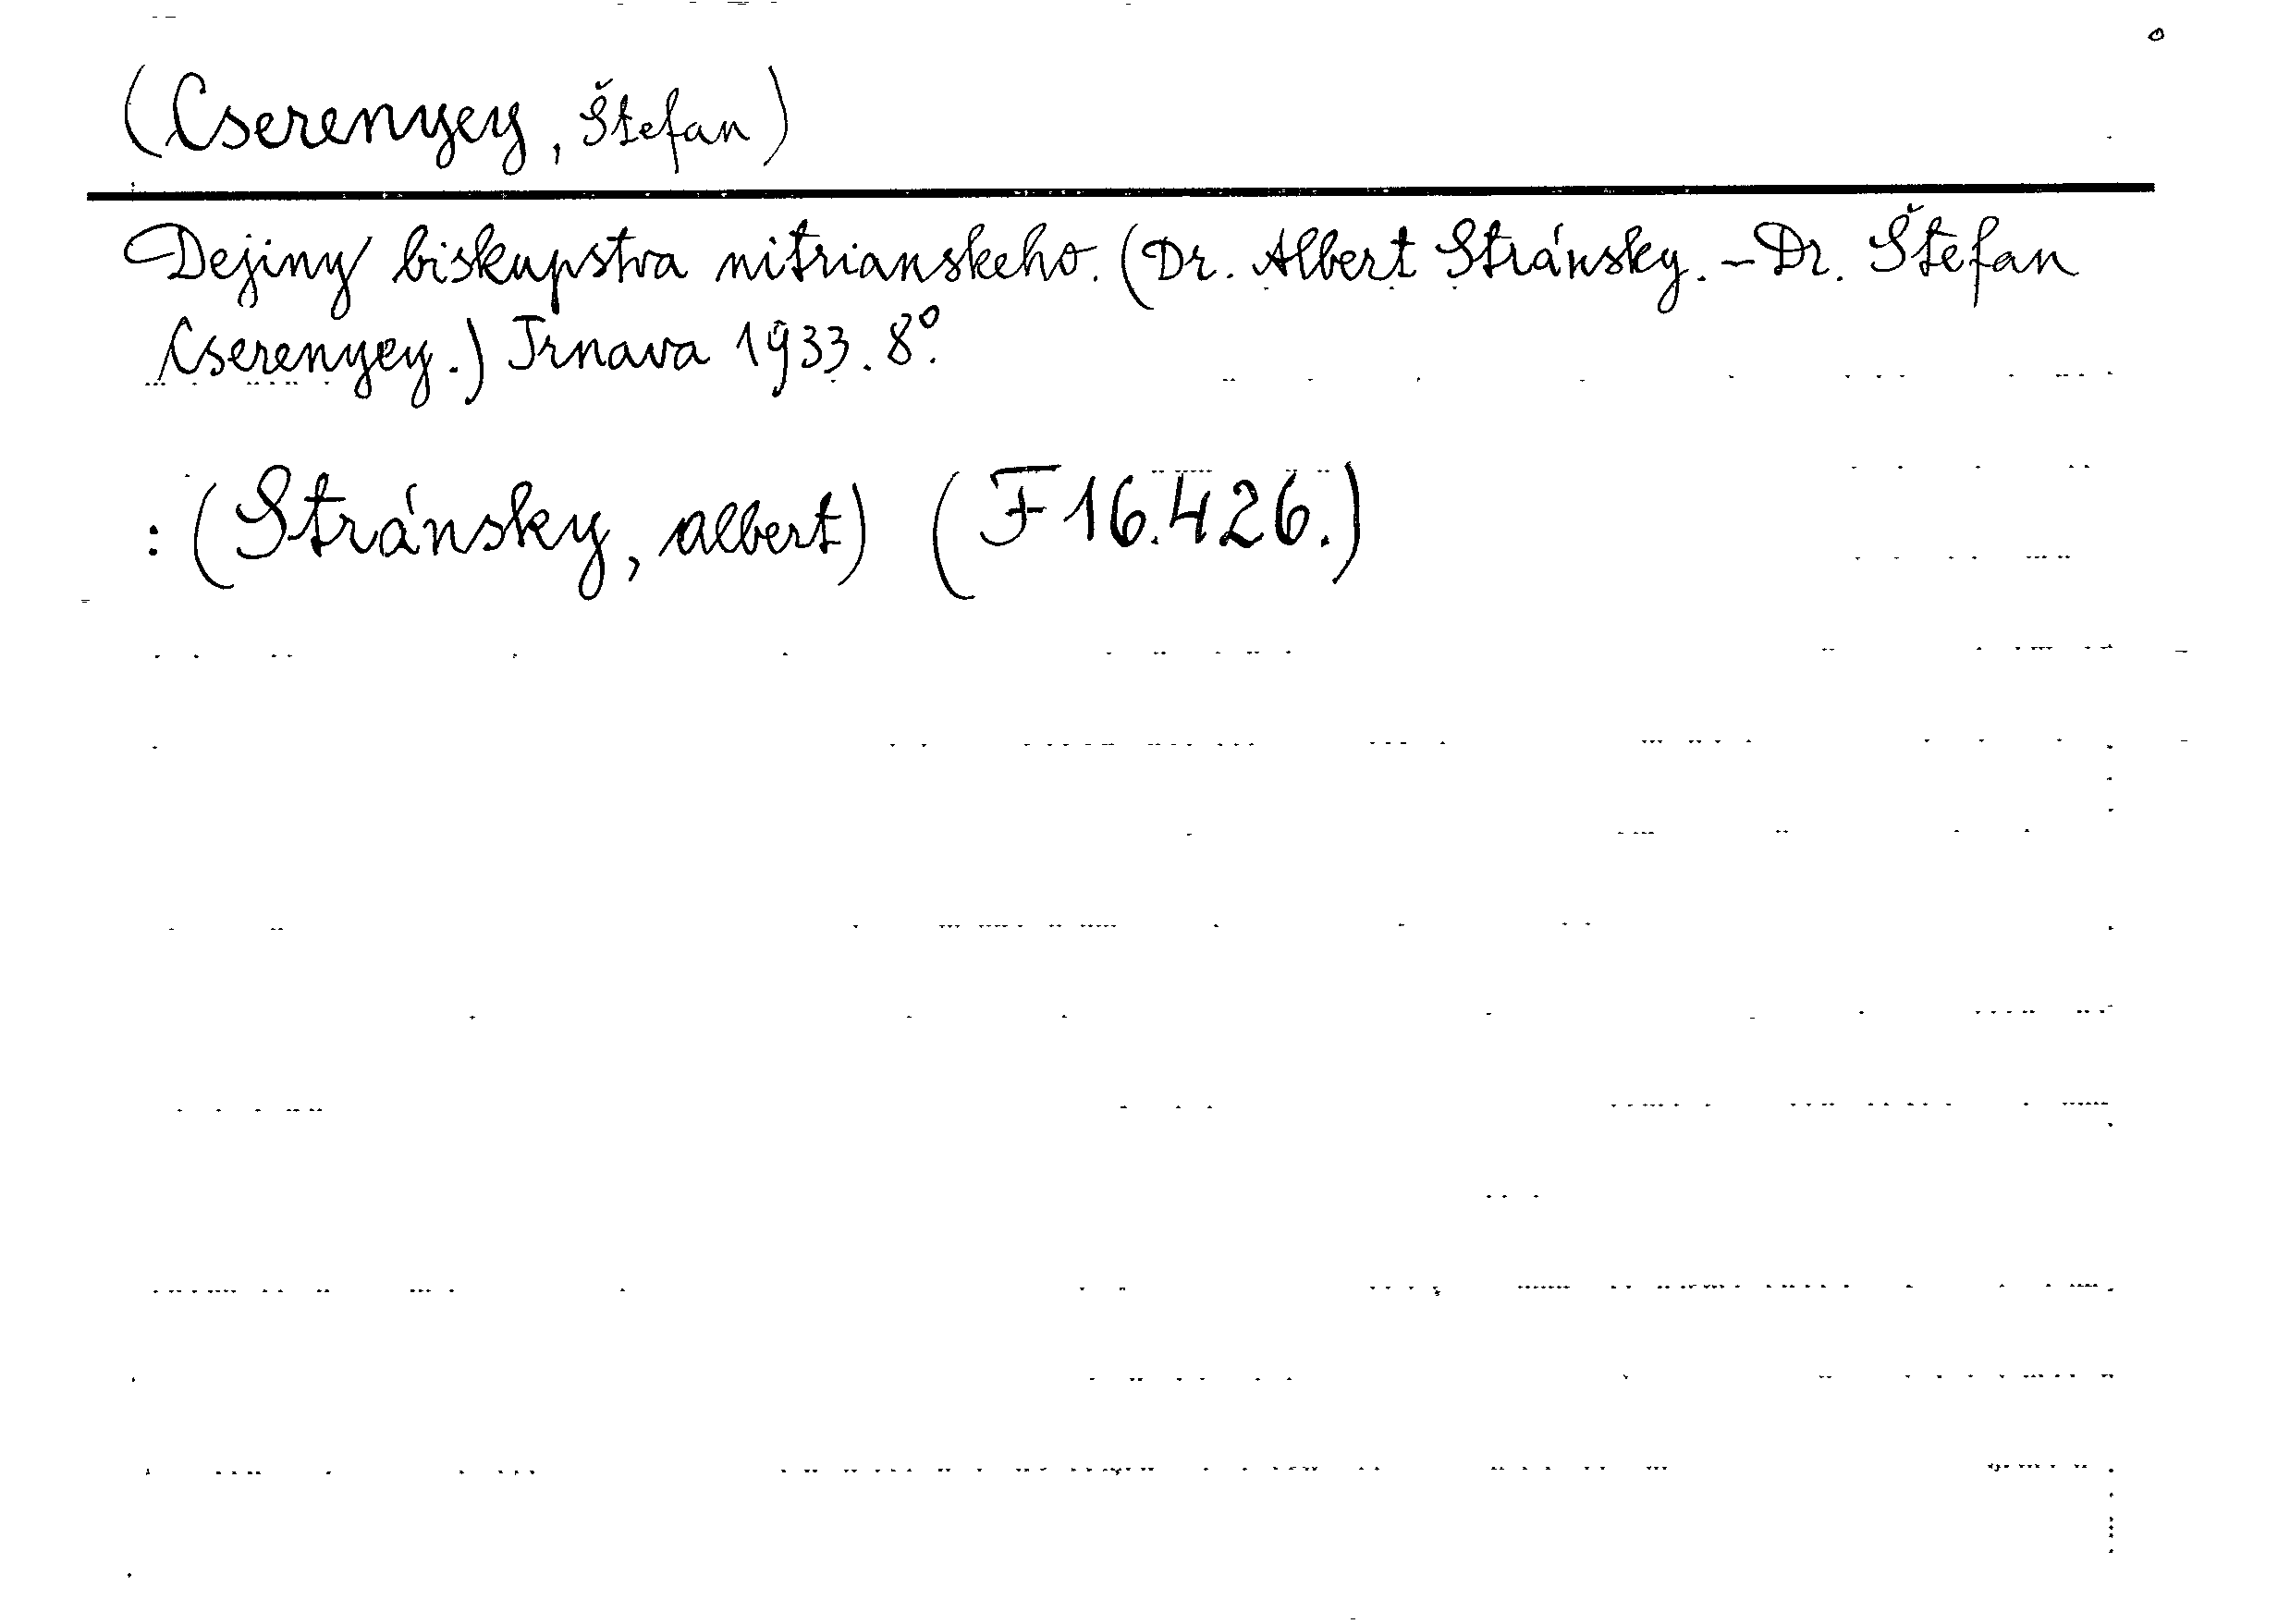 (Cserenyey, Štefan)
Dejiny biskupstva nitrianskeho. (Dr. Albert Stránsky. - Dr. Štefan
Cserenyey.) Trnava 1933. 8°.
: (Stránsky, Albert) (F 16.426.)